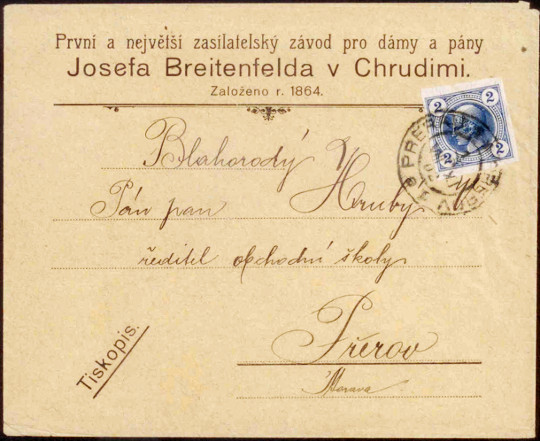 První a největší zasilatelský závod pro dámy a pány
Josefa Breitenfelda v Chrudimi.
Založeno r. 1864.
2 2
2 2
Blahorodý
Pán pan Hruby
ředitel obchodní školy
Přerov
Morava
Tiskopis.